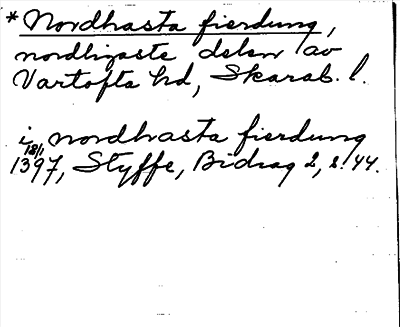 *Nordhasta fierdung,
nordligaste delen av
Vartofta hd, Skarab. l.
i nordhasta fierdung
18/1 1397, Styffe, Bidrag 2, s. 44.